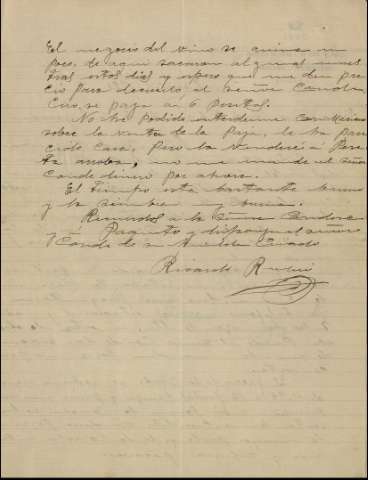 El negocio del vino se anima un
poco, de aqui sacaran algunas mues
tras estos dias y espero que me den pre
cio para decirselo al Señor Conde
Ciro, se paga á 6 pesetas.
No he podido entenderme con Mariano
sobre la venta de la Paja, le ha pare
cido cara, pero la venderé a Pese
ta arroba, no me mande el señor
Conde dinero por ahora.
El tiempo está bastante bueno
y la siembra muy buena.
Recuerdos a la Señora Condesa
y á Paquito y disponga el señor
Conde de su Atento Criado
Ricardo Rubio